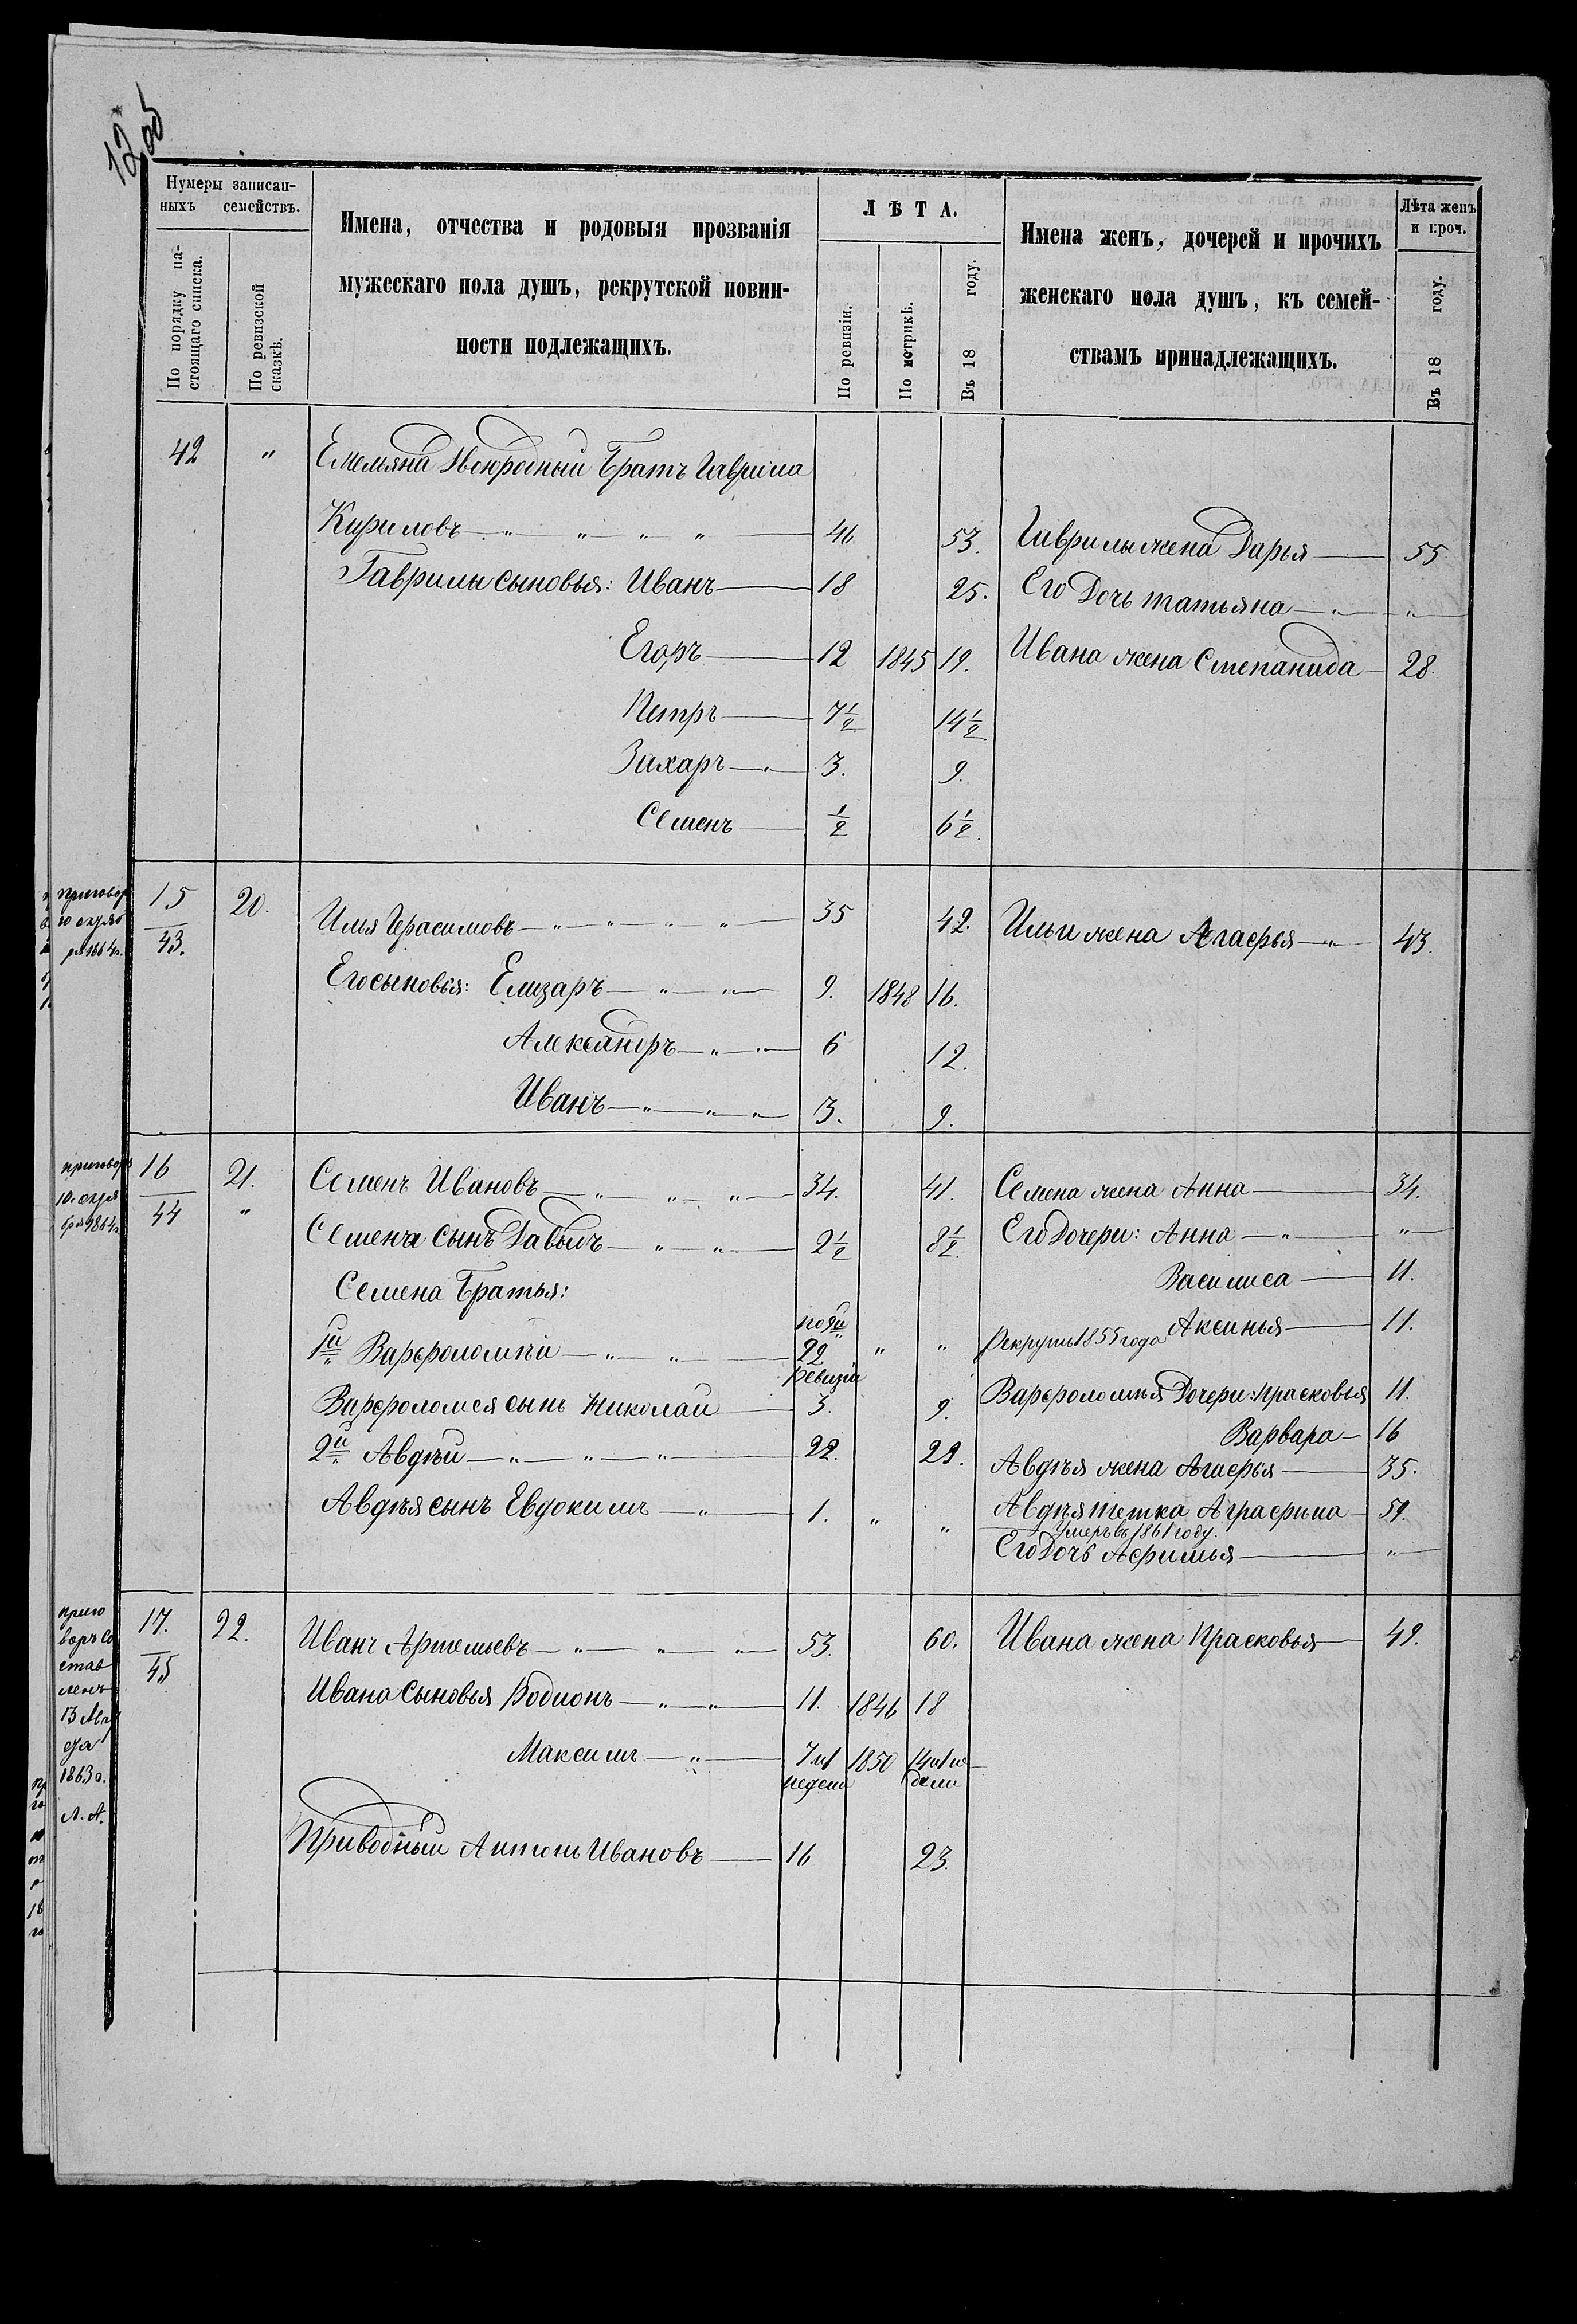 1205
Нумеры записан-
ныхъ семействъ.
По порядку на-
стоящаго списка.
По ревизской
сказкѣ.
Имена, отчества и родовыя прозванія
мужескаго пола душъ, рекрутской повин-
ности подлежащихъ.
ЛѢТА.
По ревизіи.
По метрикѣ.
Въ 18 году.
Имена женъ, дочерей и прочихъ
женскаго пола душъ, къ семей-
ствамъ принадлежащихъ.
Лѣта женъ
и проч.
Въ 18 году.
42 " Емельяна Двоюродный Братъ Гаврила
Кириловъ — " — " — " — " — 46. 53. Гаврилы жена Дарья — 55
Гаврилы сыновья: Иванъ — 18 25. Его Дочь татьяна — " — "
Егоръ — 12 1845 19. Ивана жена Степанида — 28.
Петръ — 7½ 14½
Захаръ — " — 3. 9.
Семенъ — ½ 6½.
приговор
10 октяб
ря 1864 г.
15 20. Илья Герасимовъ — " — " — " — " — 35 42. Ильи жена Агафья — " — 43.
43.
Его сыновья: Елизаръ — " — " — 9. 1848 16.
Александръ — " — " — 6 12.
Иванъ — " — " — " — 3. 9.
приговоръ
10. октя
бря 1864 г.
16 21. Семенъ Ивановъ — " — " — " — 34. 41. Семена жена Анна — 34.
44 "
Семена сынъ Давыдъ — " — " — 2½ 8½. Его Дочери: Анна — " — "
Василиса — 11.
Семена Братья:
Аксинья — 11.
1й Варфоломѣй — " — " — по 9й 22. ревизіи " " рекрутъ 1855 года
Варфоломея сынъ Николай — 3. 9. Варфоломѣя Дочери: прасковья 11.
Варвара — 16
2й Авдѣй — " — " — " — 22. 29. Авдѣя жена Агафья — 35.
Авдѣя сынъ Евдокимъ — " — 1. " " Авдѣя тетка Аграфина — 59.
Умеръ въ 1861 году.
Его Дочь Афимья — "
приго
воръ со
став
ленъ
13 Авгу
ста
1863 г.
Л. А.
17. 22. Иванъ Артемьевъ — " — " — " — 53. 60. Ивана жена Прасковья — 49.
45
Ивана Сыновья Родионъ — " — " — 11. 1846 18
Максимъ — " — 7 и 1 недели 1850 14 и 1 не-
дели
Приводный Антонъ Ивановъ — 16 23.